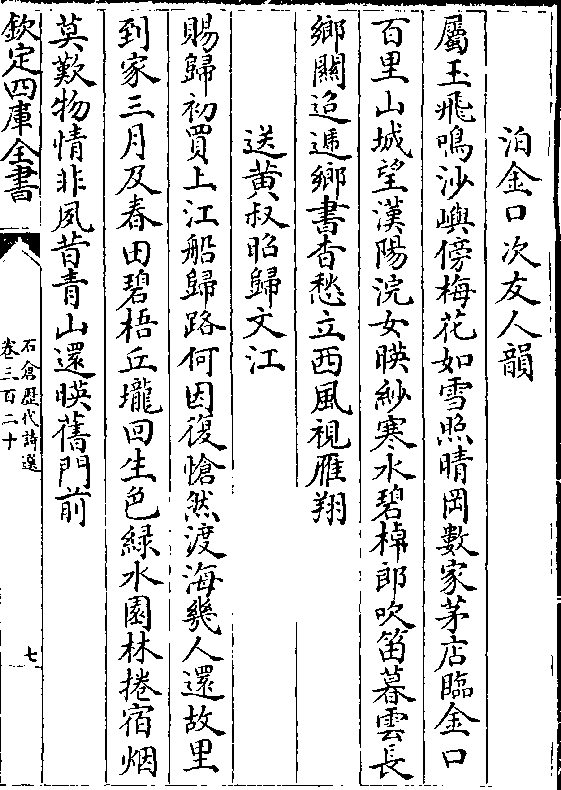 泊金口次友人韻
屬玉飛鳴沙嶼傍梅花如雪照晴岡數家茅店臨金口
百里山城望漢陽浣女暎紗寒水碧棹郎吹笛暮雲長
鄉關迢遞鄉書杳愁立西風視雁翔
送黄叔昭歸文江
賜歸初買上江船歸路何因復愴然渡海幾人還故里
到家三月及春田碧梧丘壠回生色綠水園林捲宿烟
莫歎物情非夙昔青山還暎舊門前
欽定四庫全書
石倉歷代詩選
卷三百二十
七